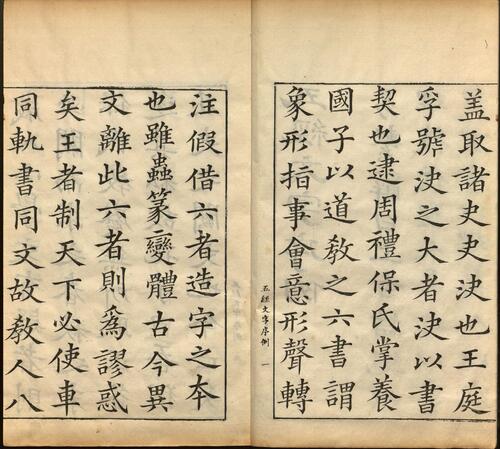 蓋取諸夬夬決也王庭
孚號決之大者決以書
契也逮周禮保氏掌養
國子以道敎之六書謂
象形指事會意形聲轉
五經文字序例 一
注假借六者造字之夲
也雖蟲篆變體古今異
文離此六者則爲謬惑
矣王者制天下必使車
同軌書同文故敎人八